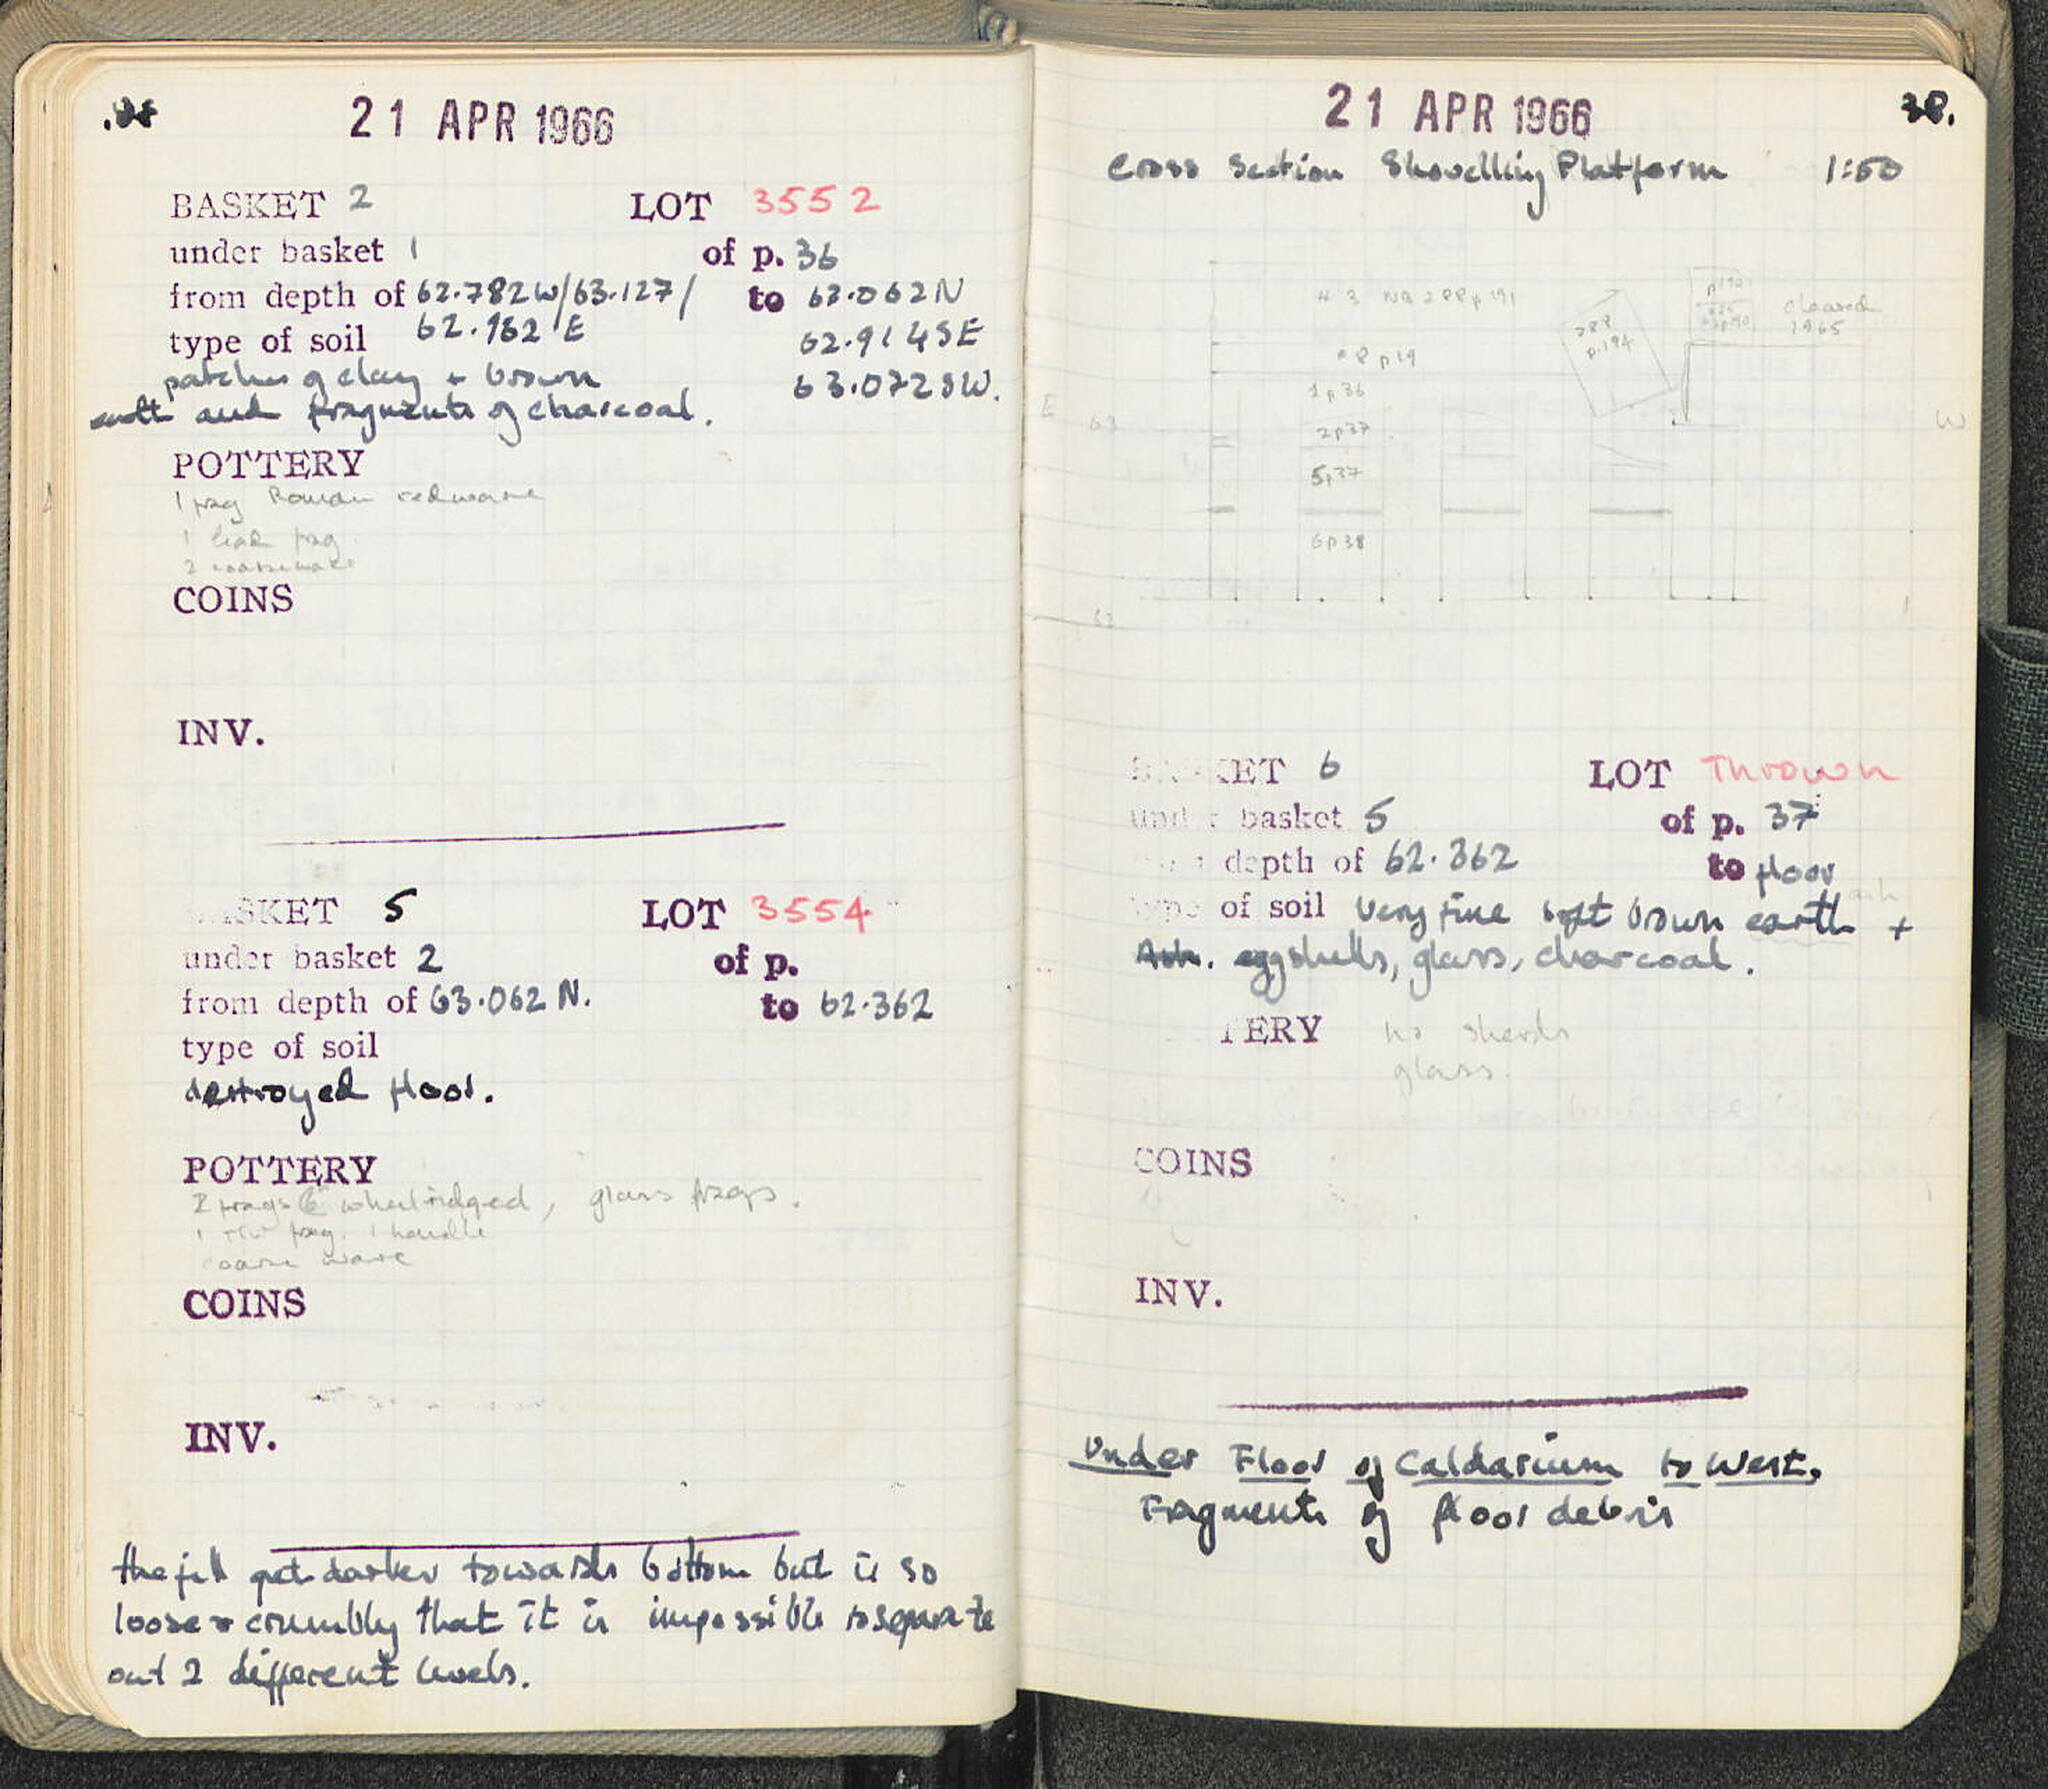 21 APR 1966
BASKET 2 LOT 3552
under basket 1 of p. 36
from depth of 62.782W/63.127/ to 63.062N
type of soil 62.962 E 62.914SE
patches of clay + brown 63.072SW.
soft and fragments of charcoal.
POTTERY
1 frag Roman redware
1 frag
2 coarseware
COINS
INV.
BASKET 5 LOT 3554
under basket 2 of p.
from depth of 63.062 N. to 62.362
type of soil
destroyed floor.
POTTERY
2 frags wheelridged, glass frags.
1 frag. 1 handle
coarse ware
COINS
INV.
the fill gets darker towards bottom but is so
loose & crumbly that it is impossible to separate
out 2 different levels.
21 APR 1966 38.
Cross Section Shovelling Platform 1:50
# 3 NB 2 PP p 191
p 192
cleared
1965
p.194
8 p 19
1 p 36
E 63 W
2 p 37
5 p 37
6 p 38
BASKET 6 LOT Thrown
under basket 5 of p. 37
depth of 62.362 to floor
ash
type of soil very fine soft brown earth +
Ash. eggshells, glass, charcoal.
TERY no sherds
glass.
COINS
INV.
Under Floor of Caldarium to West.
Fragments of floor debris